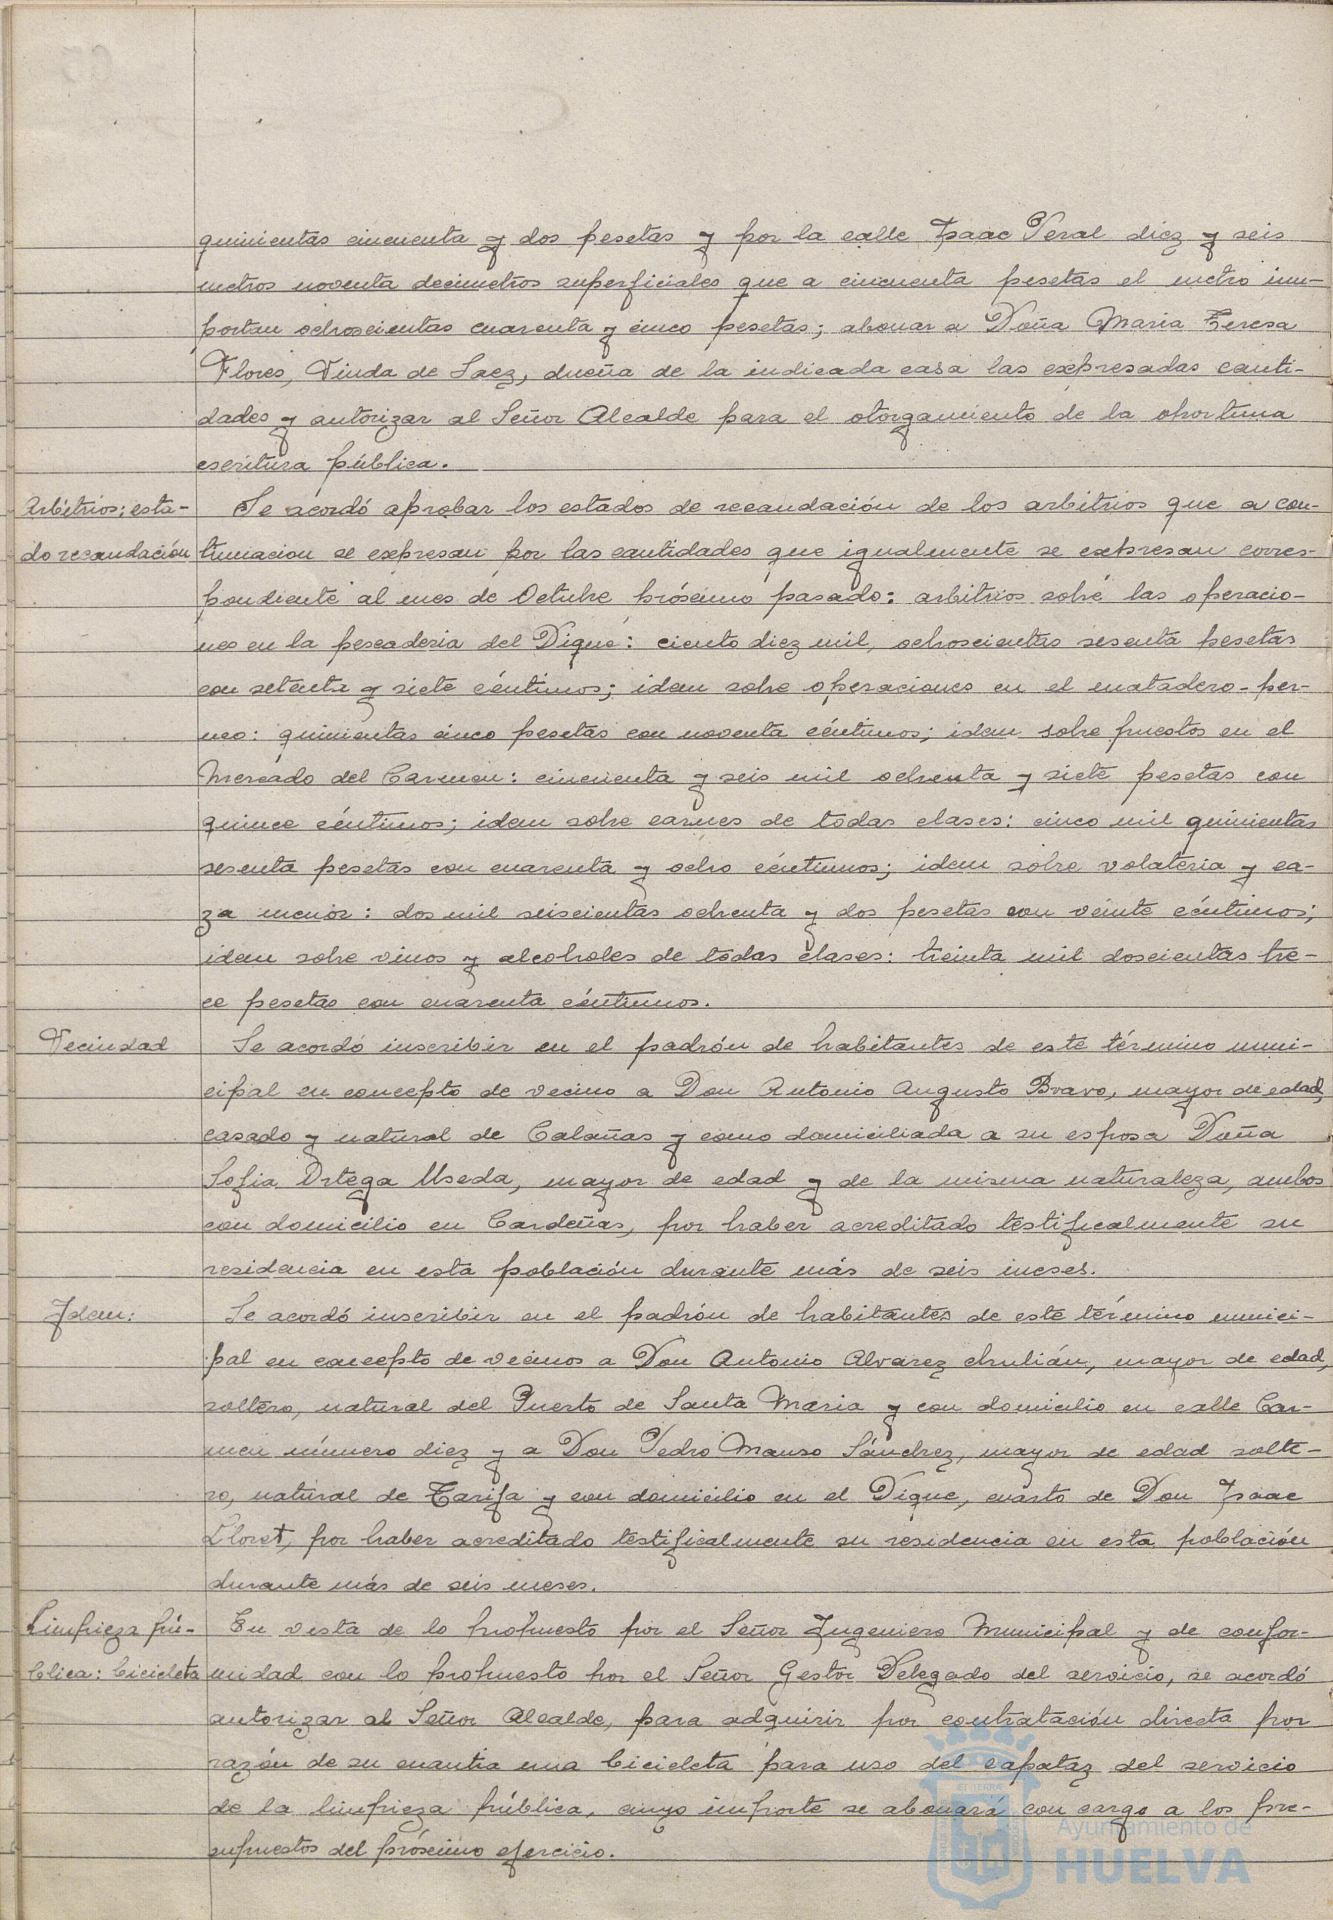 quinientas cincuenta y dos pesetas y por la calle Isaac Peral diez y seis
metros noventa decimetros superficiales que a cincuenta pesetas el metro im-
portan ochoscientas cuarenta y cinco pesetas; abonar a Doña Maria Teresa
Flores, Viuda de Saez, dueña de la indicada casa las expresadas canti-
dades y autorizar al Señor Alcalde para el otorgamiento de la oportuna
escritura pública.
Arbitrios; esta-
do recaudación
Se acordó aprobar los estados de recaudación de los arbitrios que a con-
tinuacion se expresan por las cantidades que igualmente se expresan corres-
pondiente al mes de Octubre próximo pasado: arbitrios sobre las operacio-
nes en la pescaderia del Dique: ciento diez mil, ochoscientas sesenta pesetas
con setenta y siete céntimos; idem sobre operaciones en el matadero-per-
neo: quinientas cinco pesetas con noventa céntimos; idem sobre puestos en el
Mercado del Carmen: cincuenta y seis mil ochenta y siete pesetas con
quince céntimos; idem sobre carnes de todas clases: cinco mil quinientas
sesenta pesetas con cuarenta y ocho céntimos; idem sobre volateria y ca-
za menor: dos mil seiscientas ochenta y dos pesetas con veinte céntimos;
idem sobre vinos y alcoholes de todas clases: treinta mil doscientas tre-
ce pesetas con cuarenta céntimos.
Vecindad
Se acordó inscribir en el padrón de habitantes de este término muni-
cipal en concepto de vecino a Don Antonio Augusto Bravo, mayor de edad,
casado y natural de Calañas y como domiciliada a su esposa Doña
Sofia Ortega Useda, mayor de edad y de la misma naturaleza, ambos
con domicilio en Cardeñas, por haber acreditado testificalmente su
residencia en esta población durante más de seis meses.
Idem:
Se acordó inscribir en el padrón de habitantes de este término munici-
pal en concepto de vecinos a Don Antonio Alvarez Chulián, mayor de edad,
soltero, natural del Puerto de Santa Maria y con domicilio en calle Car-
men número diez y a Don Pedro Manso Sánchez, mayor de edad solte-
ro, natural de Tarifa y con domicilio en el Dique, cuarto de Don Isaac
Lloret, por haber acreditado testificalmente su residencia en esta población
durante más de seis meses.
Limpieza pú-
blica: bicicleta
En vista de lo propuesto por el Señor Ingeniero Municipal y de confor-
midad con lo propuesto por el Señor Gestor Delegado del servicio, se acordó
autorizar al Señor Alcalde, para adquirir por contratación directa por
razón de su cuantia una bicicleta para uso del capataz del servicio
de la limpieza pública, cuyo importe se abonará con cargo a los pre-
supuestos del próximo ejercicio.
Ayuntamiento de
HUELVA